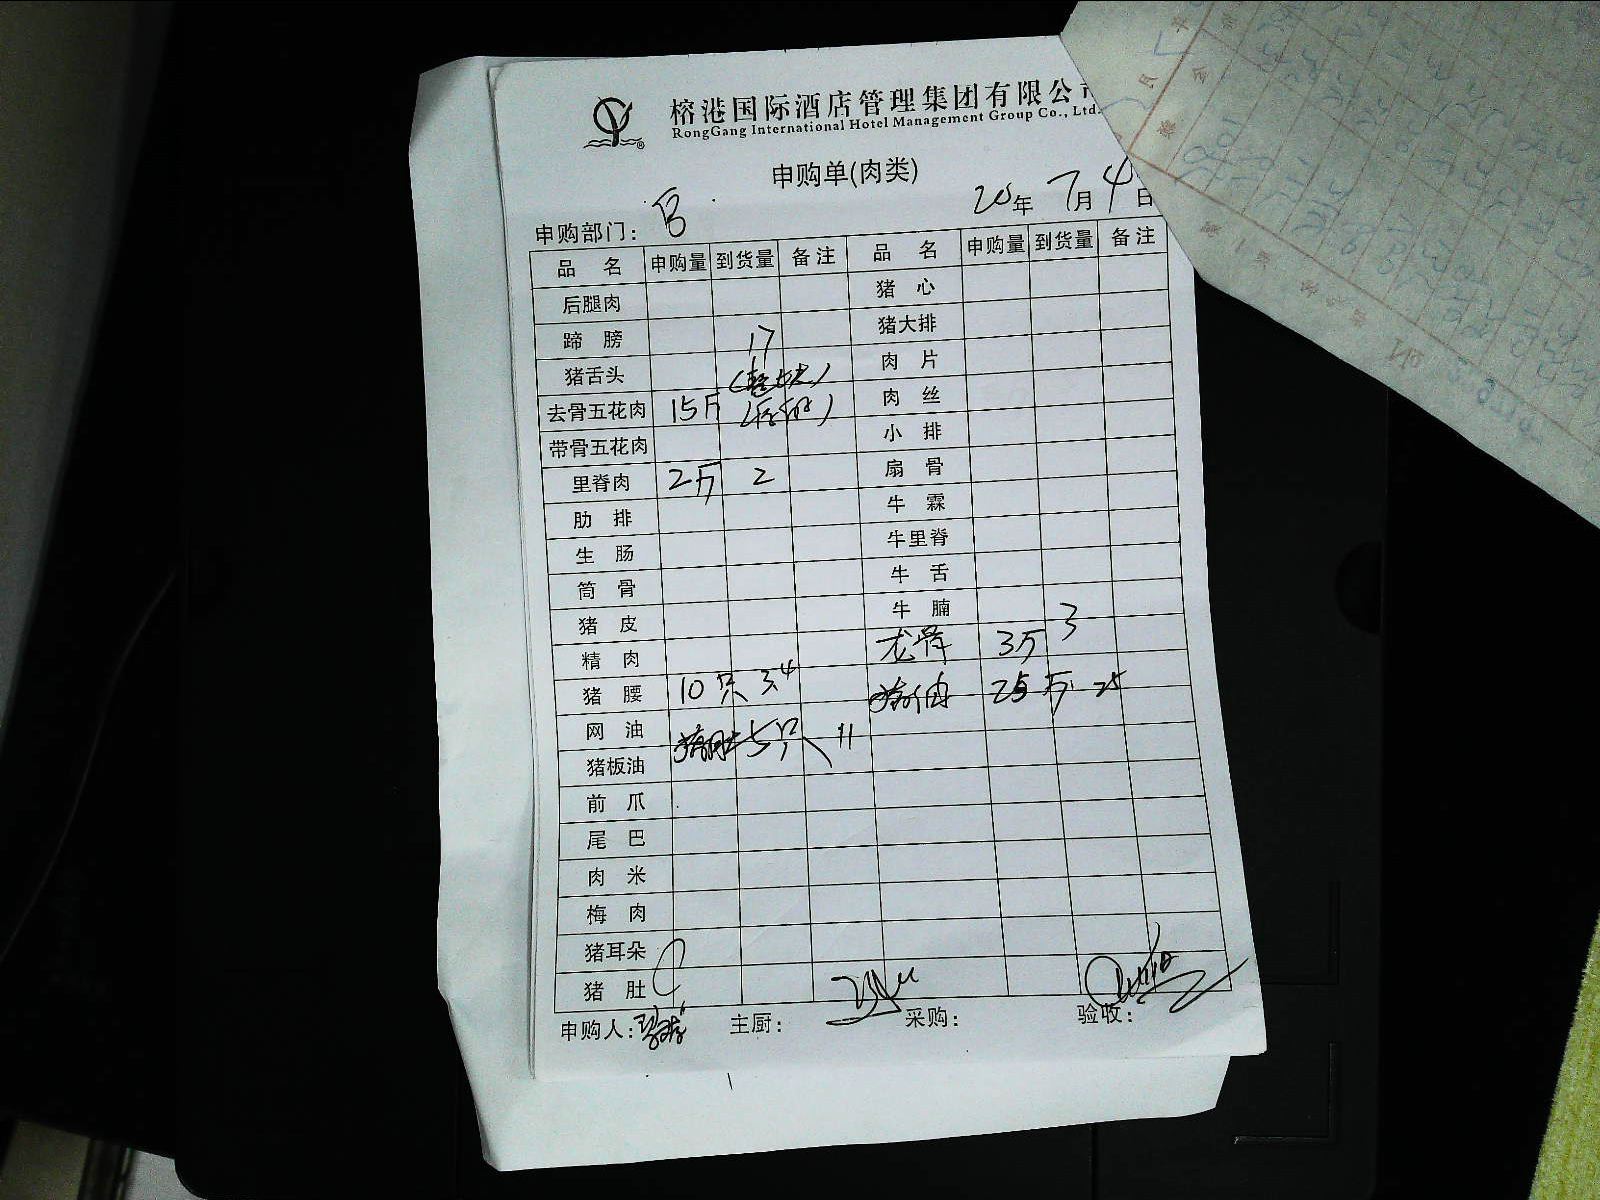 榕港国际酒店管理集团有限公
RongGang International Hotel Management Group Co., Ltd.
申购单(肉类)
申购部门： 20年 7月 4日
品 名 申购量 到货量 备注 品 名 申购量 到货量 备注
后腿肉 猪 心
蹄 膀 17 猪大排
猪舌头 肉 片
去骨五花肉 15斤 肉 丝
带骨五花肉 小 排
里脊肉 2斤 2 扇 骨
肋 排 牛 霖
生 肠 牛里脊
筒 骨 牛 舌
猪 皮 牛 腩
精 肉 龙骨 3斤 3
猪 腰 10只 3.4 猪油 25斤 25
网 油 猪肚 5只 11
猪板油
前 爪
尾 巴
肉 米
梅 肉
猪耳朵
猪 肚
申购人： 主厨： 采购： 验收：